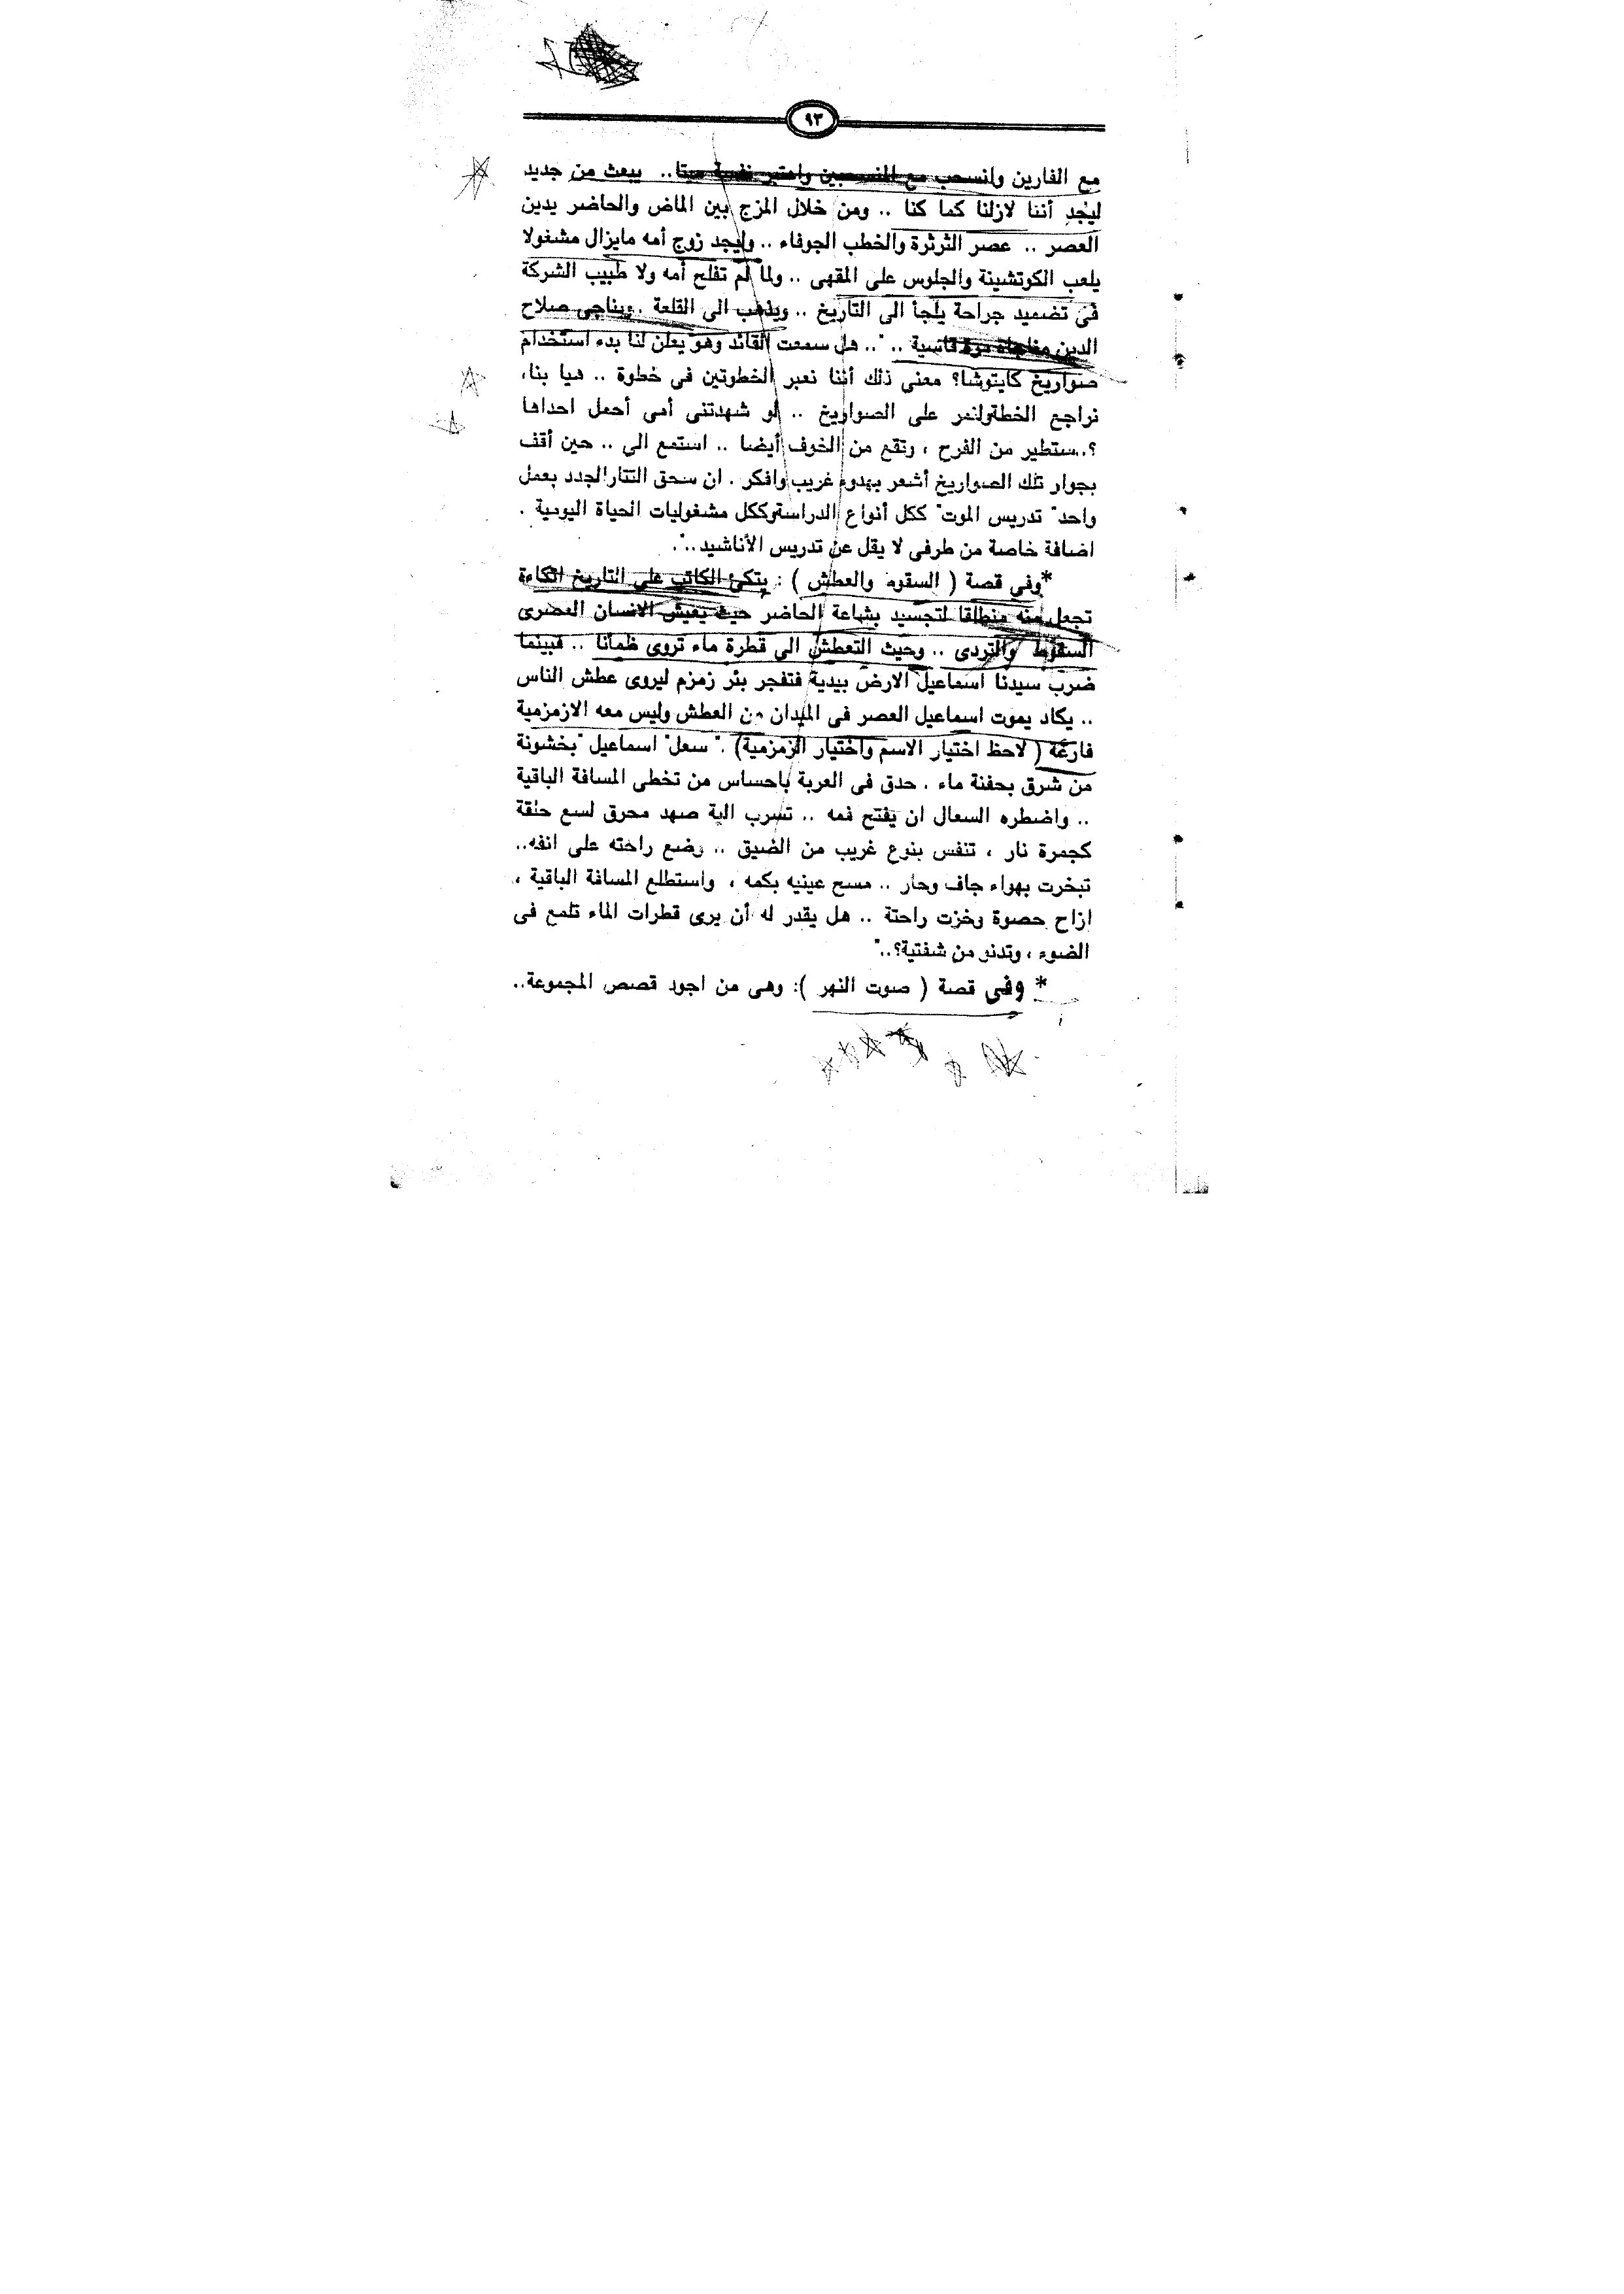 ٩٣
مع الفارين وانسحب مع المنسحبين واعتبر نفسة ميتا.. يبعث من جديد
ليجد أننا لازلنا كما كنا .. ومن خلال المزج بين الماض والحاضر يدين
العصر .. عصر الثرثرة والخطب الجوفاء .. وليجد زوج أمه مايزال مشغولا
يلعب الكوتشينة والجلوس على المقهى .. ولما لم تفلح أمه ولا طبيب الشركة
فى تضميد جراحة يلجأ الى التاريخ .. ويذهب الى القلعة .. ويناجى صلاح
الدين مناجاة مرة قاسية .. ".. هل سمعت القائد وهو يعلن لنا بدء استخدام
صواريخ كايتوشا؟ معنى ذلك أننا نعبر الخطوتين فى خطوة .. هيا بنا،
نراجع الخطةولنمر على الصواريخ .. لو شهدتنى أمى أحمل احداها
؟..ستطير من الفرح ، وتقع من الخوف أيضا .. استمع الى .. حين أقف
بجوار تلك الصواريخ أشعر بهدوء غريب وافكر . ان سحق التتار الجدد بعمل
واحد" تدريس الموت" ككل أنواع الدراسةوككل مشغوليات الحياة اليومية .
اضافة خاصة من طرفى لا يقل عن تدريس الأناشيد..".
*وفى قصة ( السقوط والعطش ) : يتكئ الكاتب على التاريخ اتكاءة
تجعل منه منطلقا لتجسيد بشاعة الحاضر حيث يعيش الانسان العصرى
السقوط والتردى .. وحيث التعطش الى قطرة ماء تروى ظمانا .. فبينما
ضرب سيدنا اسماعيل الارض بيدية فتفجر بئر زمزم ليروى عطش الناس
.. يكاد يموت اسماعيل العصر فى الميدان من العطش وليس معه الازمزمية
فارغة ( لاحظ اختيار الاسم واختيار الزمزمية) ." سعل" اسماعيل "بخشونة
من شرق بحفنة ماء . حدق فى العربة باحساس من تخطى المسافة الباقية
.. واضطره السعال ان يفتح فمه .. تسرب الية صهد محرق لسع حلقة
كجمرة نار ، تنفس بنوع غريب من الضيق .. وضع راحته على انفه..
تبخرت بهواء جاف وحار .. مسح عينيه بكمه ، واستطلع المسافة الباقية ،
ازاح حصوة وخزت راحتة .. هل يقدر له أن يرى قطرات الماء تلمع فى
الضوء ، وتدنو من شفتية؟.."
* وفى قصة ( صوت النهر ): وهى من اجود قصص المجموعة..